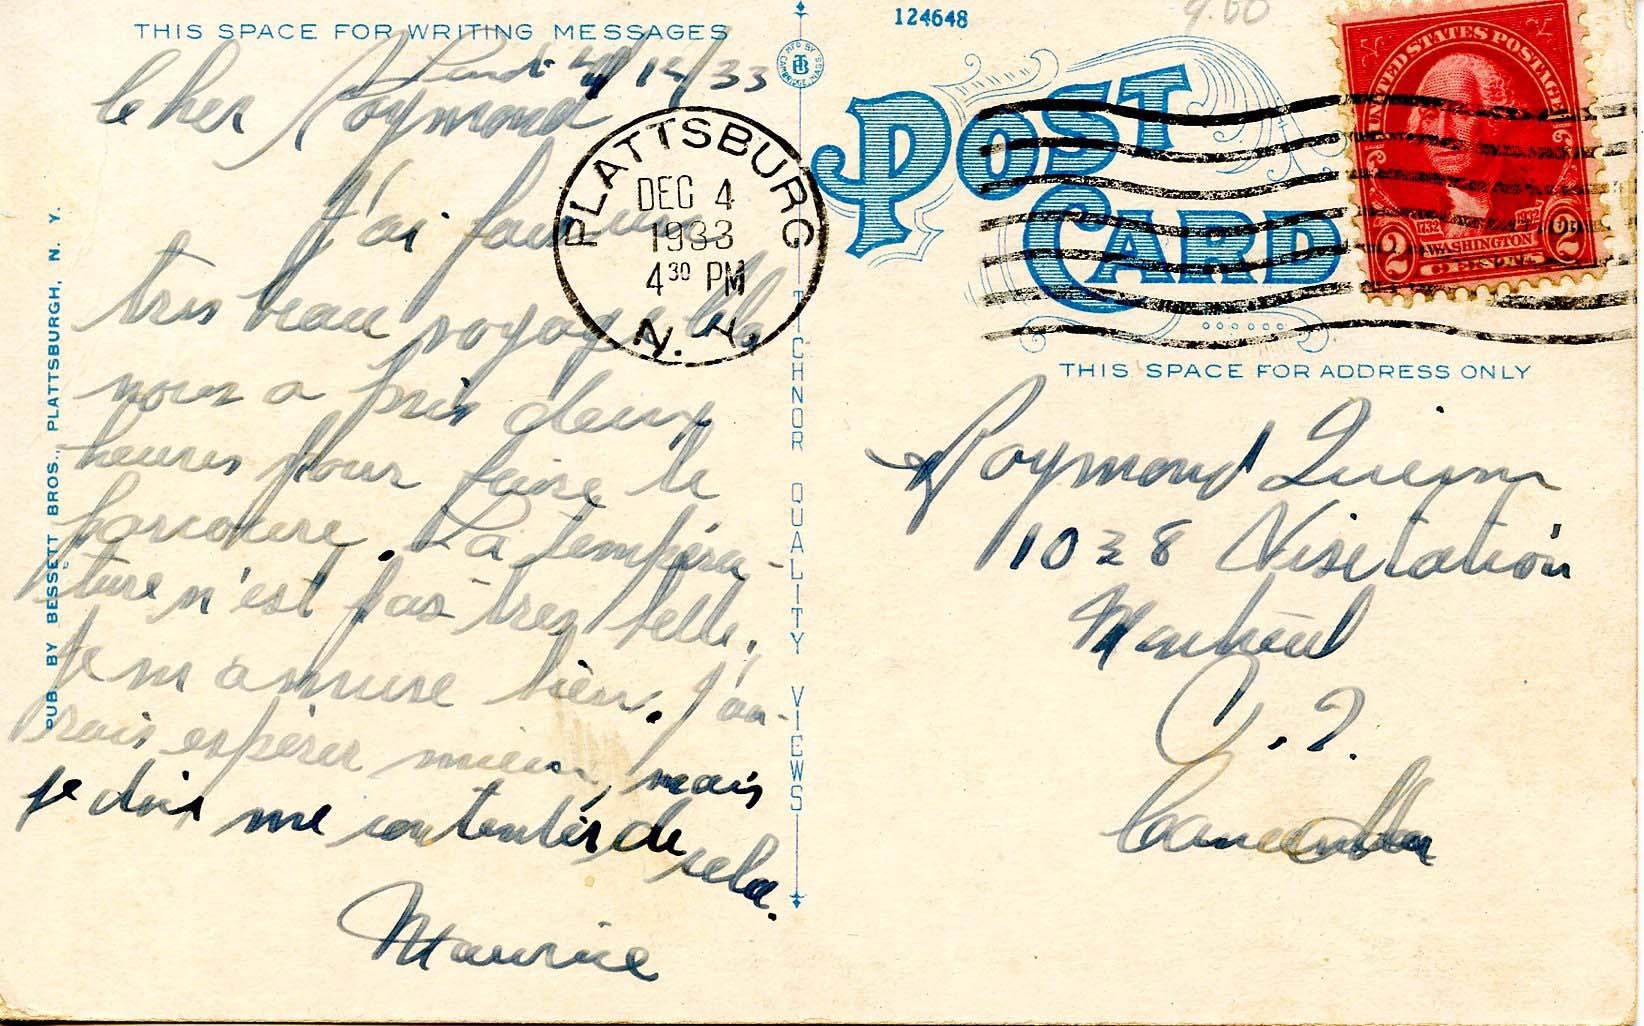 THIS SPACE FOR WRITING MESSAGES
Lundi 4/12/33
Cher Raymond
J'ai fait un
très beau voyage. Cela
nous a pris deux
heures pour faire le
parcours. La tempéra-
ture n'est pas très belle.
Je m'amuse bien. J'au-
rais espérer mieux, mais
je dois me contenter de
cela.
Maurice
PUB. BY BESSETT BROS., PLATTSBURGH, N. Y.
TICHNOR QUALITY VIEWS
MFD BY
TB
CAMBRIDGE, MASS
124648
PLATTSBURG
DEC 4
1933
4 30 PM
N.Y.
POST
CARD
UNITED STATES POSTAGE
1732
WASHINGTON
2 CENTS 2
THIS SPACE FOR ADDRESS ONLY
Raymond
1028 Visitation
Montréal
P.Q.
Canada